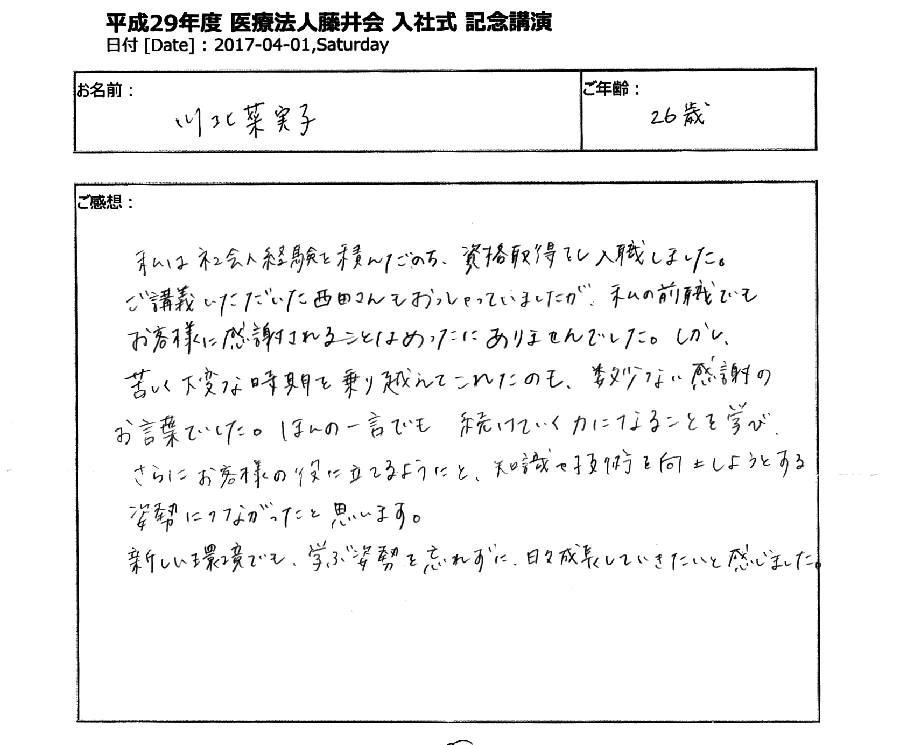 平成29年度 医療法人藤井会 入社式 記念講演
日付 [Date] : 2017-04-01,Saturday
お名前：
川北菜実子
ご年齢：
26歳
ご感想：
私は社会人経験を積んだのち、資格取得をし入職しました。
ご講義いただいた西田さんもおっしゃっていましたが、私の前職でも
お客様に感謝されることはめったにありませんでした。しかし、
苦しく大変な時期を乗り越えてこれたのも、数少ない感謝の
お言葉でした。ほんの一言でも 続けていく力になることを学び、
さらにお客様の役に立てるようにと、知識や技術を向上しようとする
姿勢につながったと思います。
新しい環境でも、学ぶ姿勢を忘れずに、日々成長していきたいと感じました。